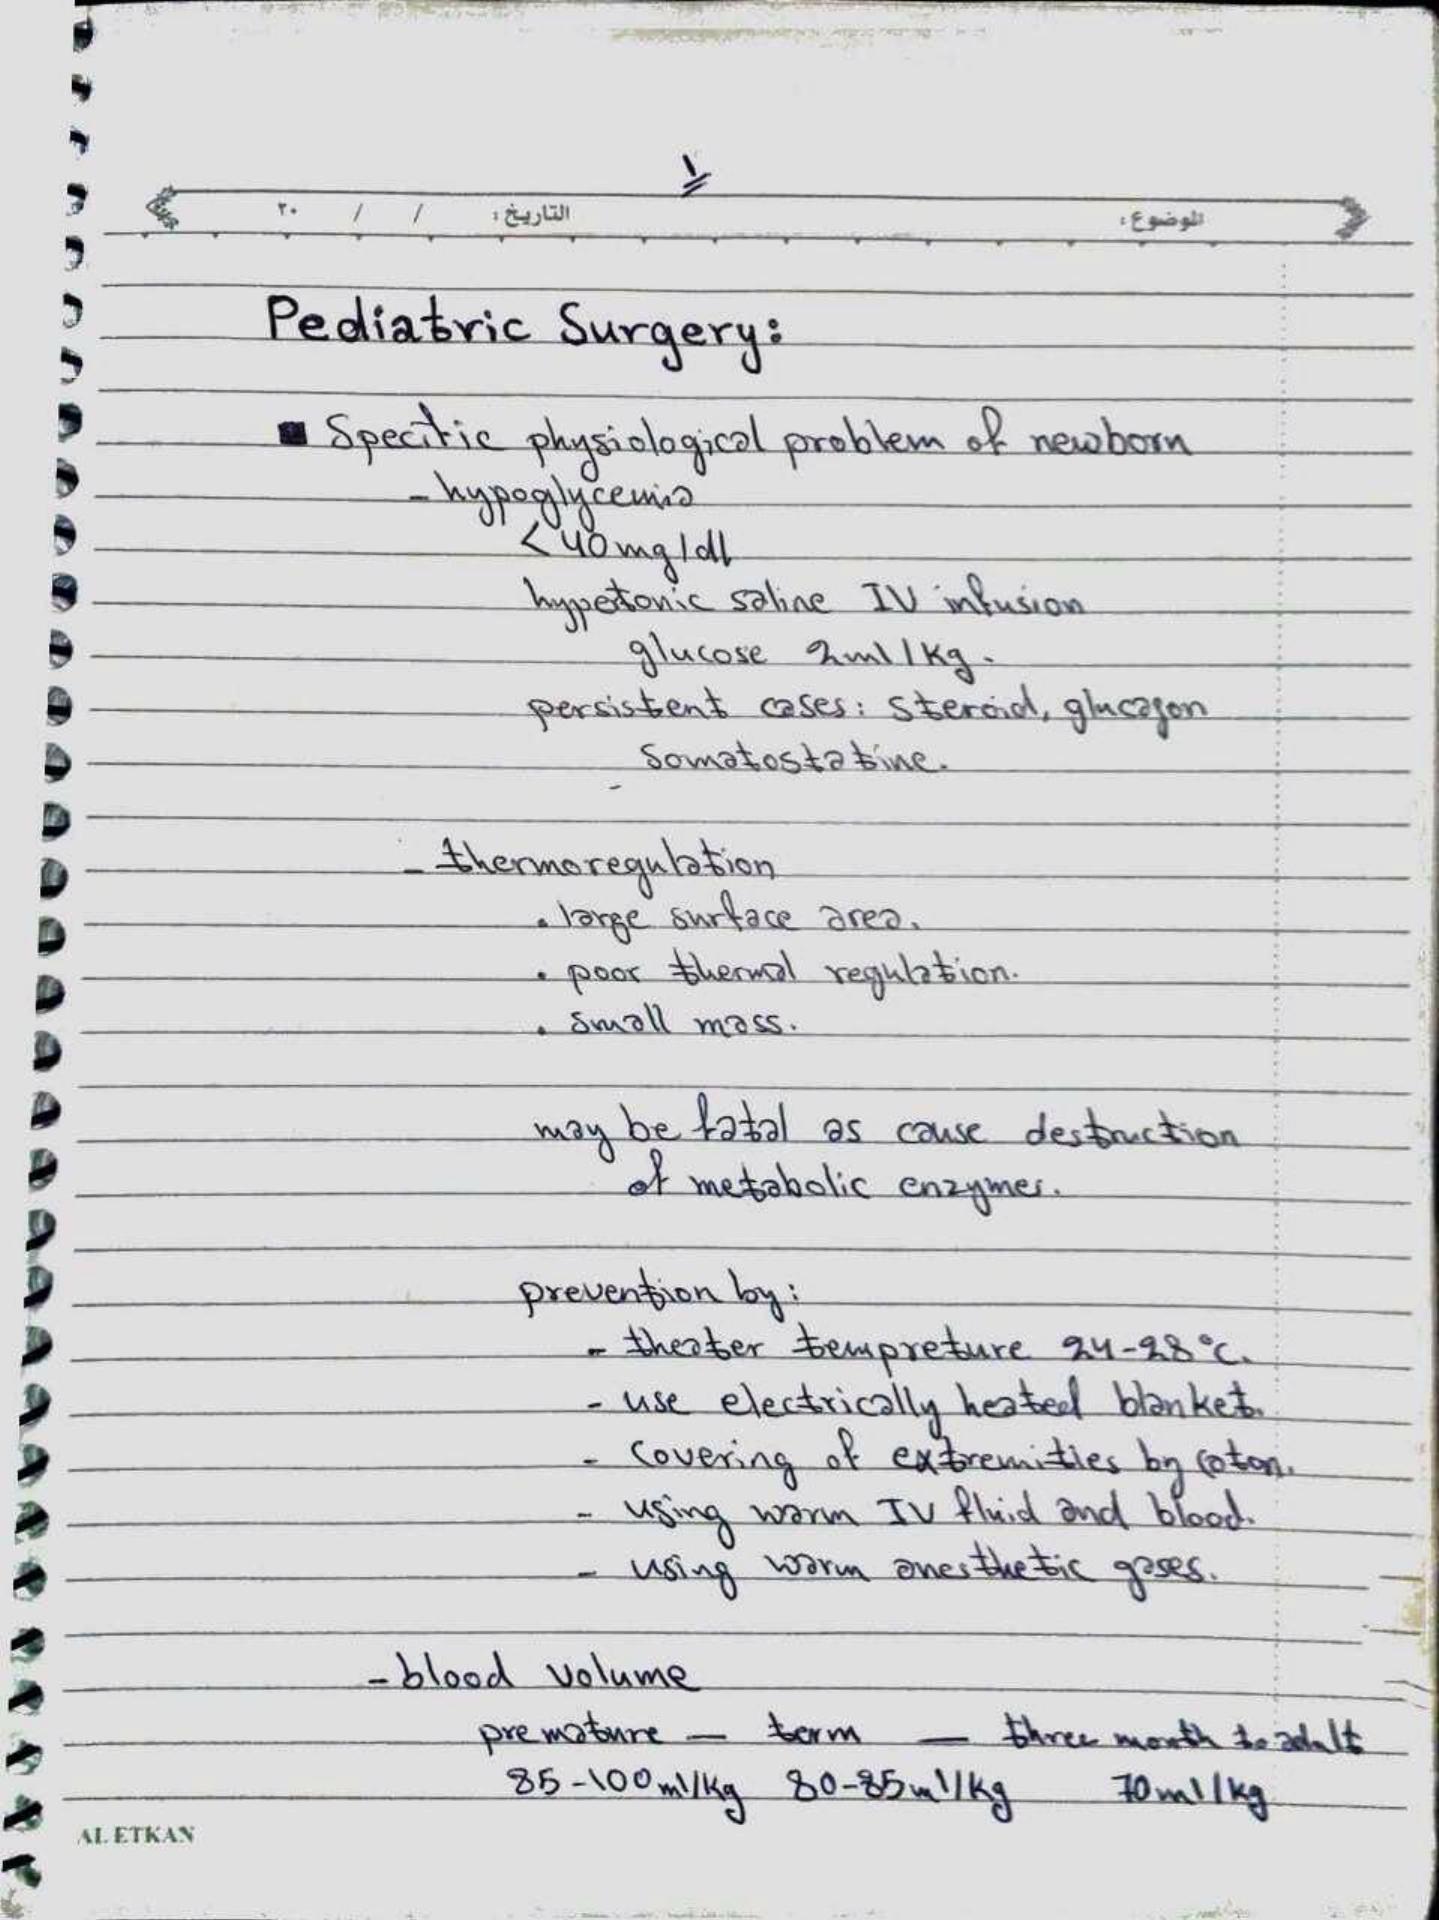 ١
الموضوع: التاريخ: / / ٢٠
Pediatric Surgery:
■ Specific physiological problem of newborn
- hypoglycemia
< 40 mg/dl
hypertonic saline IV infusion
glucose 2ml/kg.
persistent cases: steroid, glucagon
somatostatine.
- thermoregulation
. large surface area.
. poor thermal regulation.
. small mass.
may be fatal as cause destruction
of metabolic enzymes.
prevention by:
- theater tempreture 24-28°C.
- use electrically heated blanket.
- covering of extremities by coton.
- using warm IV fluid and blood.
- using warm anesthetic gases.
- blood volume
premature — term — three month to adult
85-100ml/kg 80-85ml/kg 70ml/kg
AL ETKAN